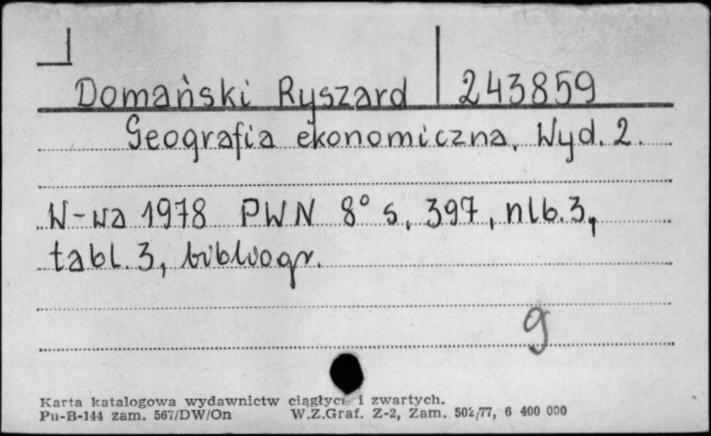 Domański Ryszard 243859
Geografia ekonomiczna, Wyd. 2.
W-wa 1978 PWN 8° s. 397, nlb. 3,
tabl. 3, bibliogr.
g
Karta katalogowa wydawnictw ciągłych i zwartych.
Pu-B-144 zam. 567/DW/On W.Z.Graf. Z-2, Zam. 502/77, 6 400 000